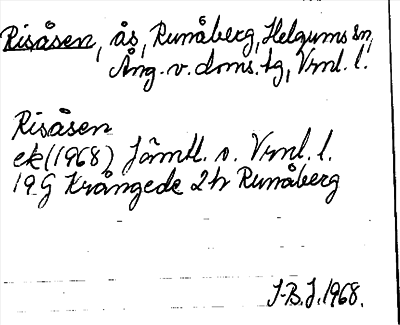 Risåsen, ås, Runåberg, Helgums sn,
Ång. v. doms. tg, Vml. l.
Risåsen
ek (1968) Jämtl. o. Vml. l.
19 G Krångede 2h Runåberg
J-B.J. 1968.